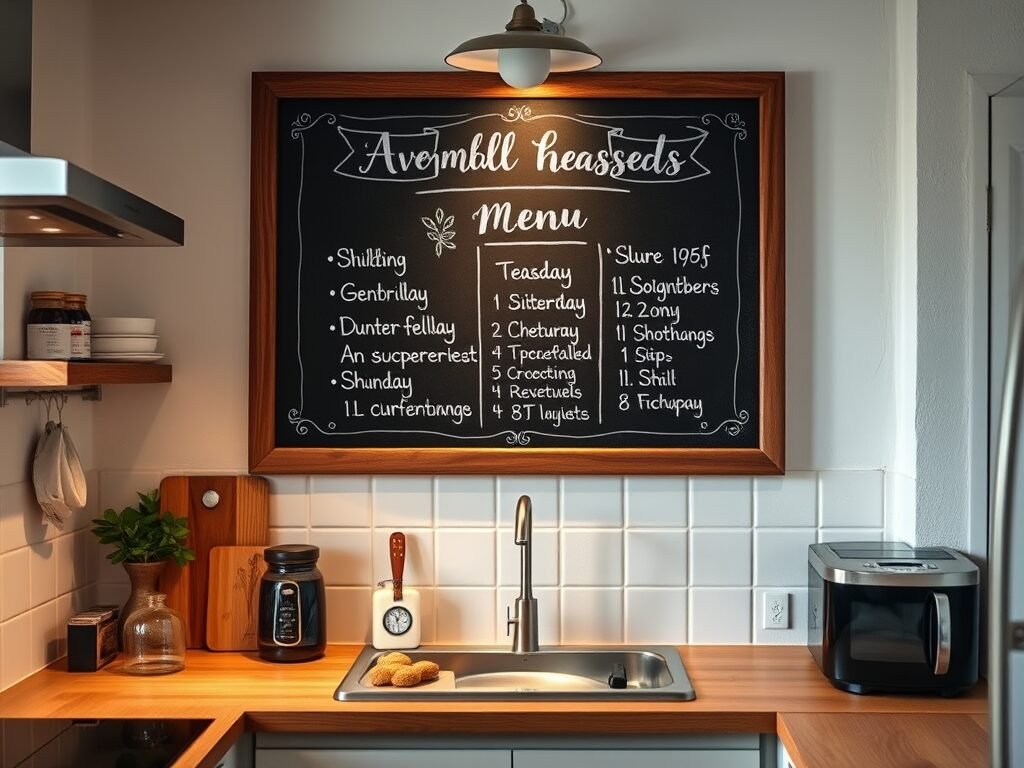 Avermbll heasseds
Menu
• Shildting
• Gentbrillay
• Dunter fellay
An sucpererlest
• Shunday
1L curfentbrange
Teasday
1 Sitterday
2 Cheturay
4 Tpcnefalled
5 Croccting
4 Revetuels
4 8T layists
• Slure 195f
11 Solgntbers
12 2ony
11 Shothangs
1 Sips
11. Shill
8 Fichypay